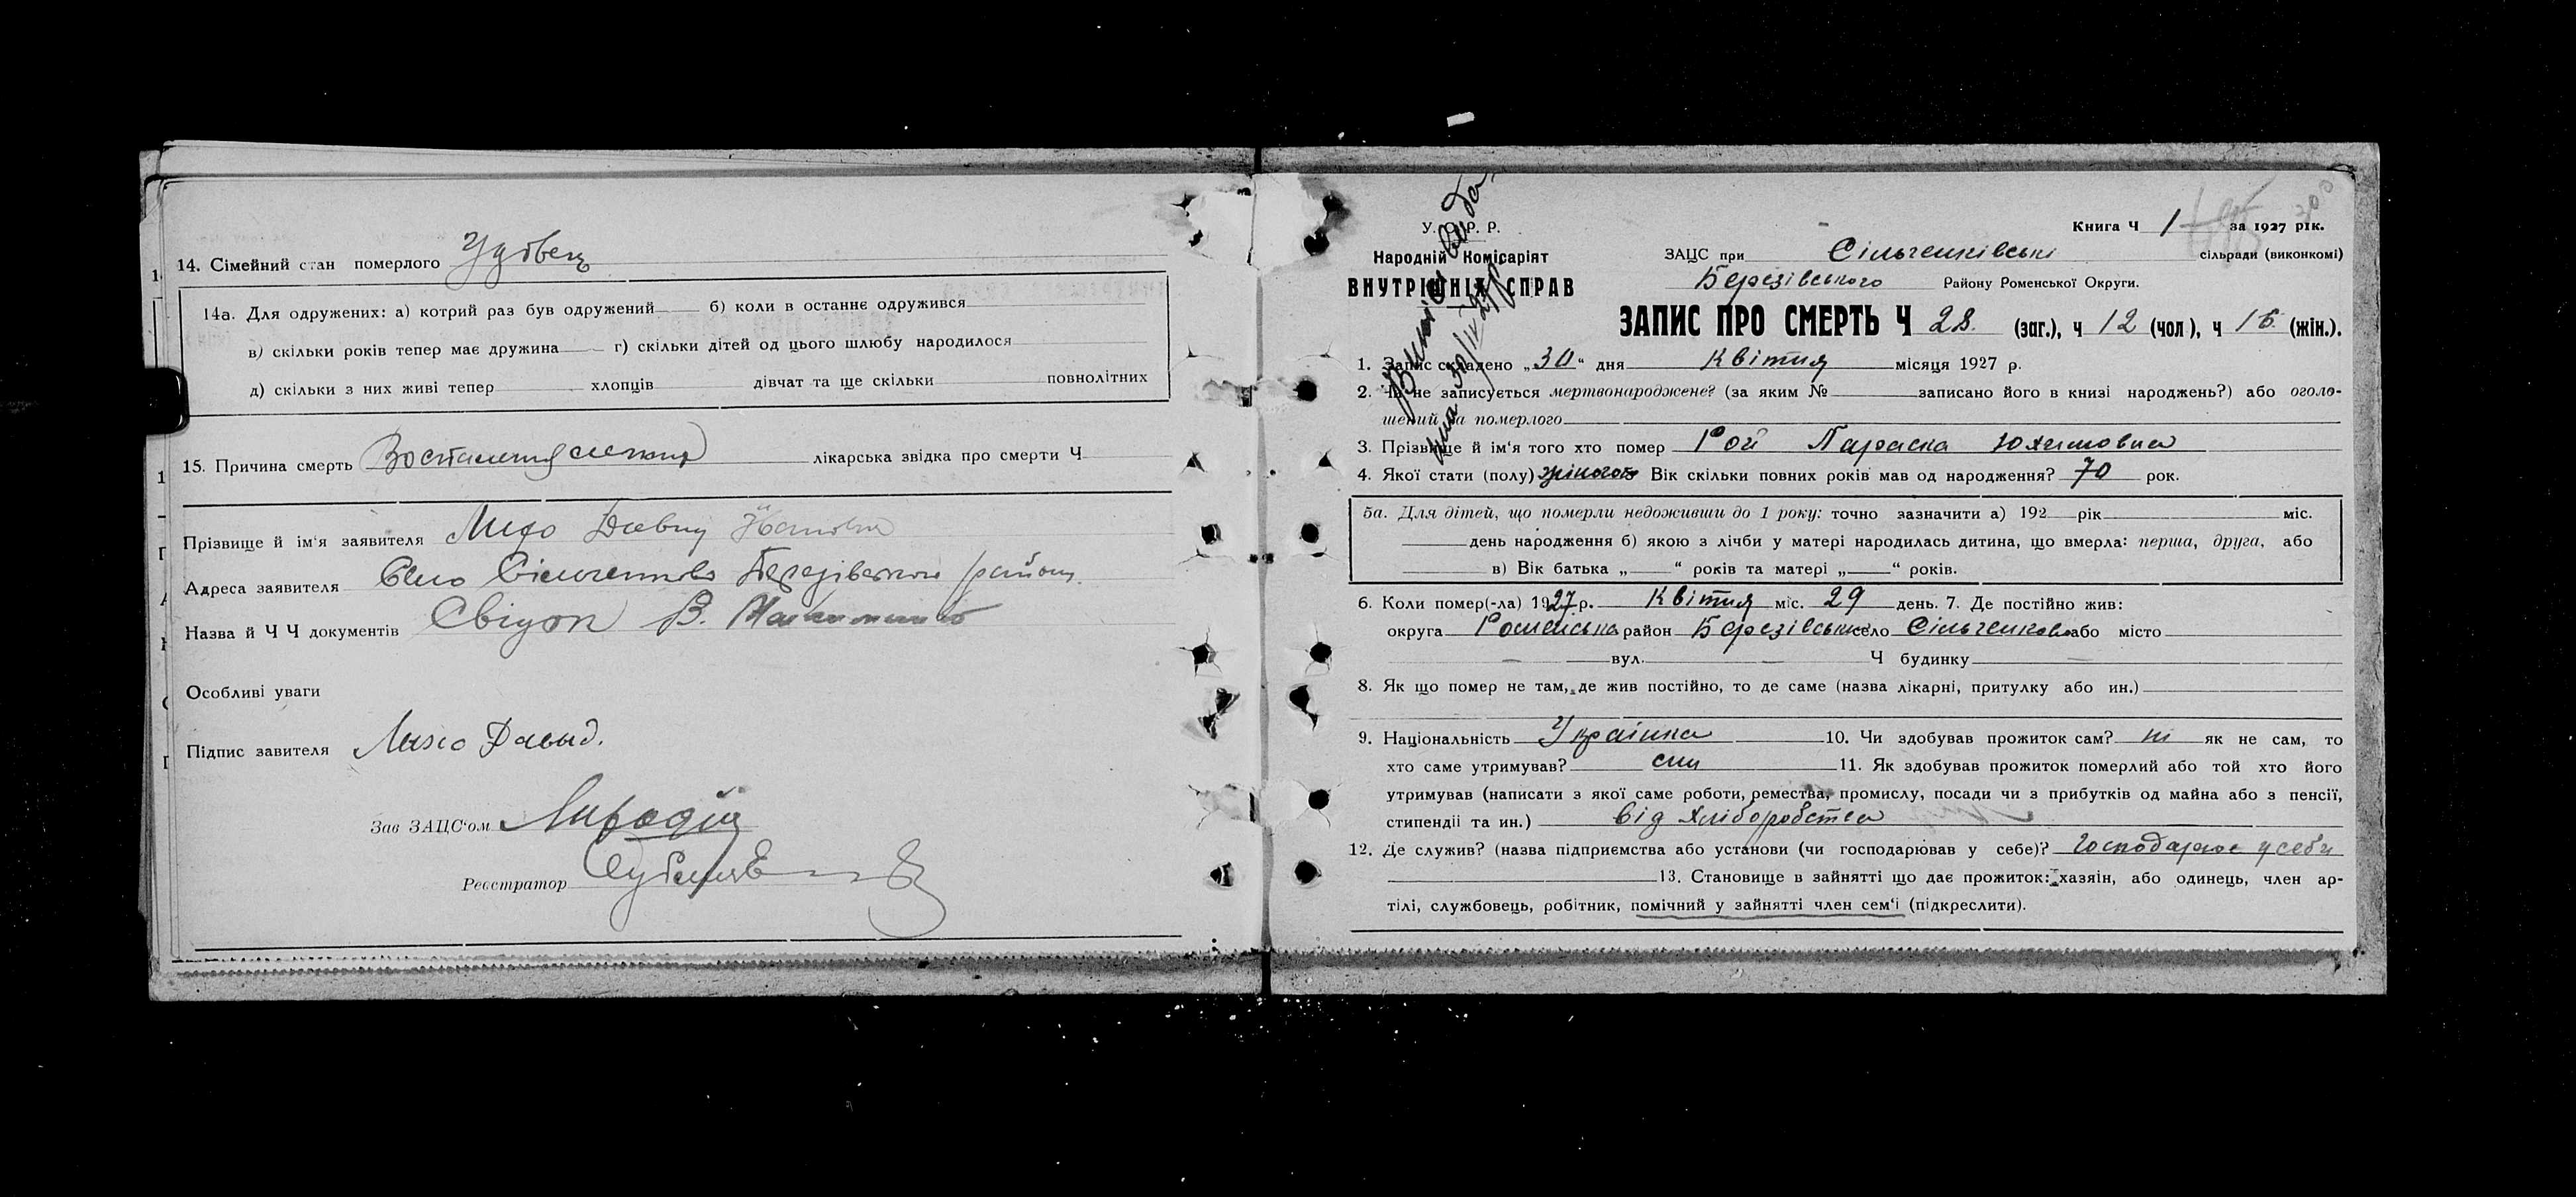 14. Сімейний стан померлого Удовец
14а. Для одружених: а) котрий раз був одружений б) коли в останнє одружився
в) скільки років тепер має дружина г) скільки дітей од цього шлюбу народилося
д) скільки з них живі тепер хлопців дівчат та ще скільки повнолітних
15. Причина смерть лікарська звідка про смерти Ч
Прізвище й ім'я заявителя Лихо Давид
Адреса заявителя Село Сільченково Березівського району.
Назва й Ч Ч документів Свідок В.
Особливі уваги
Підпис завителя Лихо Давыд.
Зав ЗАЦС'ом
Реєстратор
У. С. Р. Р.
Народній Комісаріят
ВНУТРІШНІХ СПРАВ
Книга Ч 1 за 1927 рік.
ЗАЦС при Сільченківські сільради (виконкомі)
Березівського Району Роменської Округи.
ЗАПИС ПРО СМЕРТЬ Ч 28. (заг.), ч 12 (чол), ч 16 (жін.).
1. Запис складено „30“ дня Квітня місяця 1927 р.
2. Чи не записується мертвонароджене? (за яким № записано його в книзі народжень?) або оголо-
шений за померлого
3. Прізвище й ім'я того хто помер Рой Параска Юхимовна
4. Якої стати (полу) жіночого Вік скільки повних років мав од народження? 70 рок.
5а. Для дітей, що померли недоживши до 1 року: точно зазначити а) 192 рік міс.
день народження б) якою з лічби у матері народилась дитина, що вмерла: перша, друга, або
в) Вік батька „ “ років та матері „ “ років.
6. Коли помер(-ла) 1927 р. Квітня міс. 29 день. 7. Де постійно жив:
округа Роменська район Березівськи село Сільченково або місто
вул. Ч будинку
8. Як що помер не там, де жив постійно, то де саме (назва лікарні, притулку або ин.)
9. Національність Українка 10. Чи здобував прожиток сам? ні як не сам, то
хто саме утримував? син 11. Як здобував прожиток померлий або той хто його
утримував (написати з якої саме роботи, ремества, промислу, посади чи з прибутків од майна або з пенсії,
стипендії та ин.) від Хліборобства
12. Де служив? (назва підприємства або установи (чи господарював у себе)? Господарює у себи
13. Становище в зайнятті що дає прожиток: хазяін, або одинець, член ар-
тілі, службовець, робітник, помічний у зайнятті член сем'ї (підкреслити).